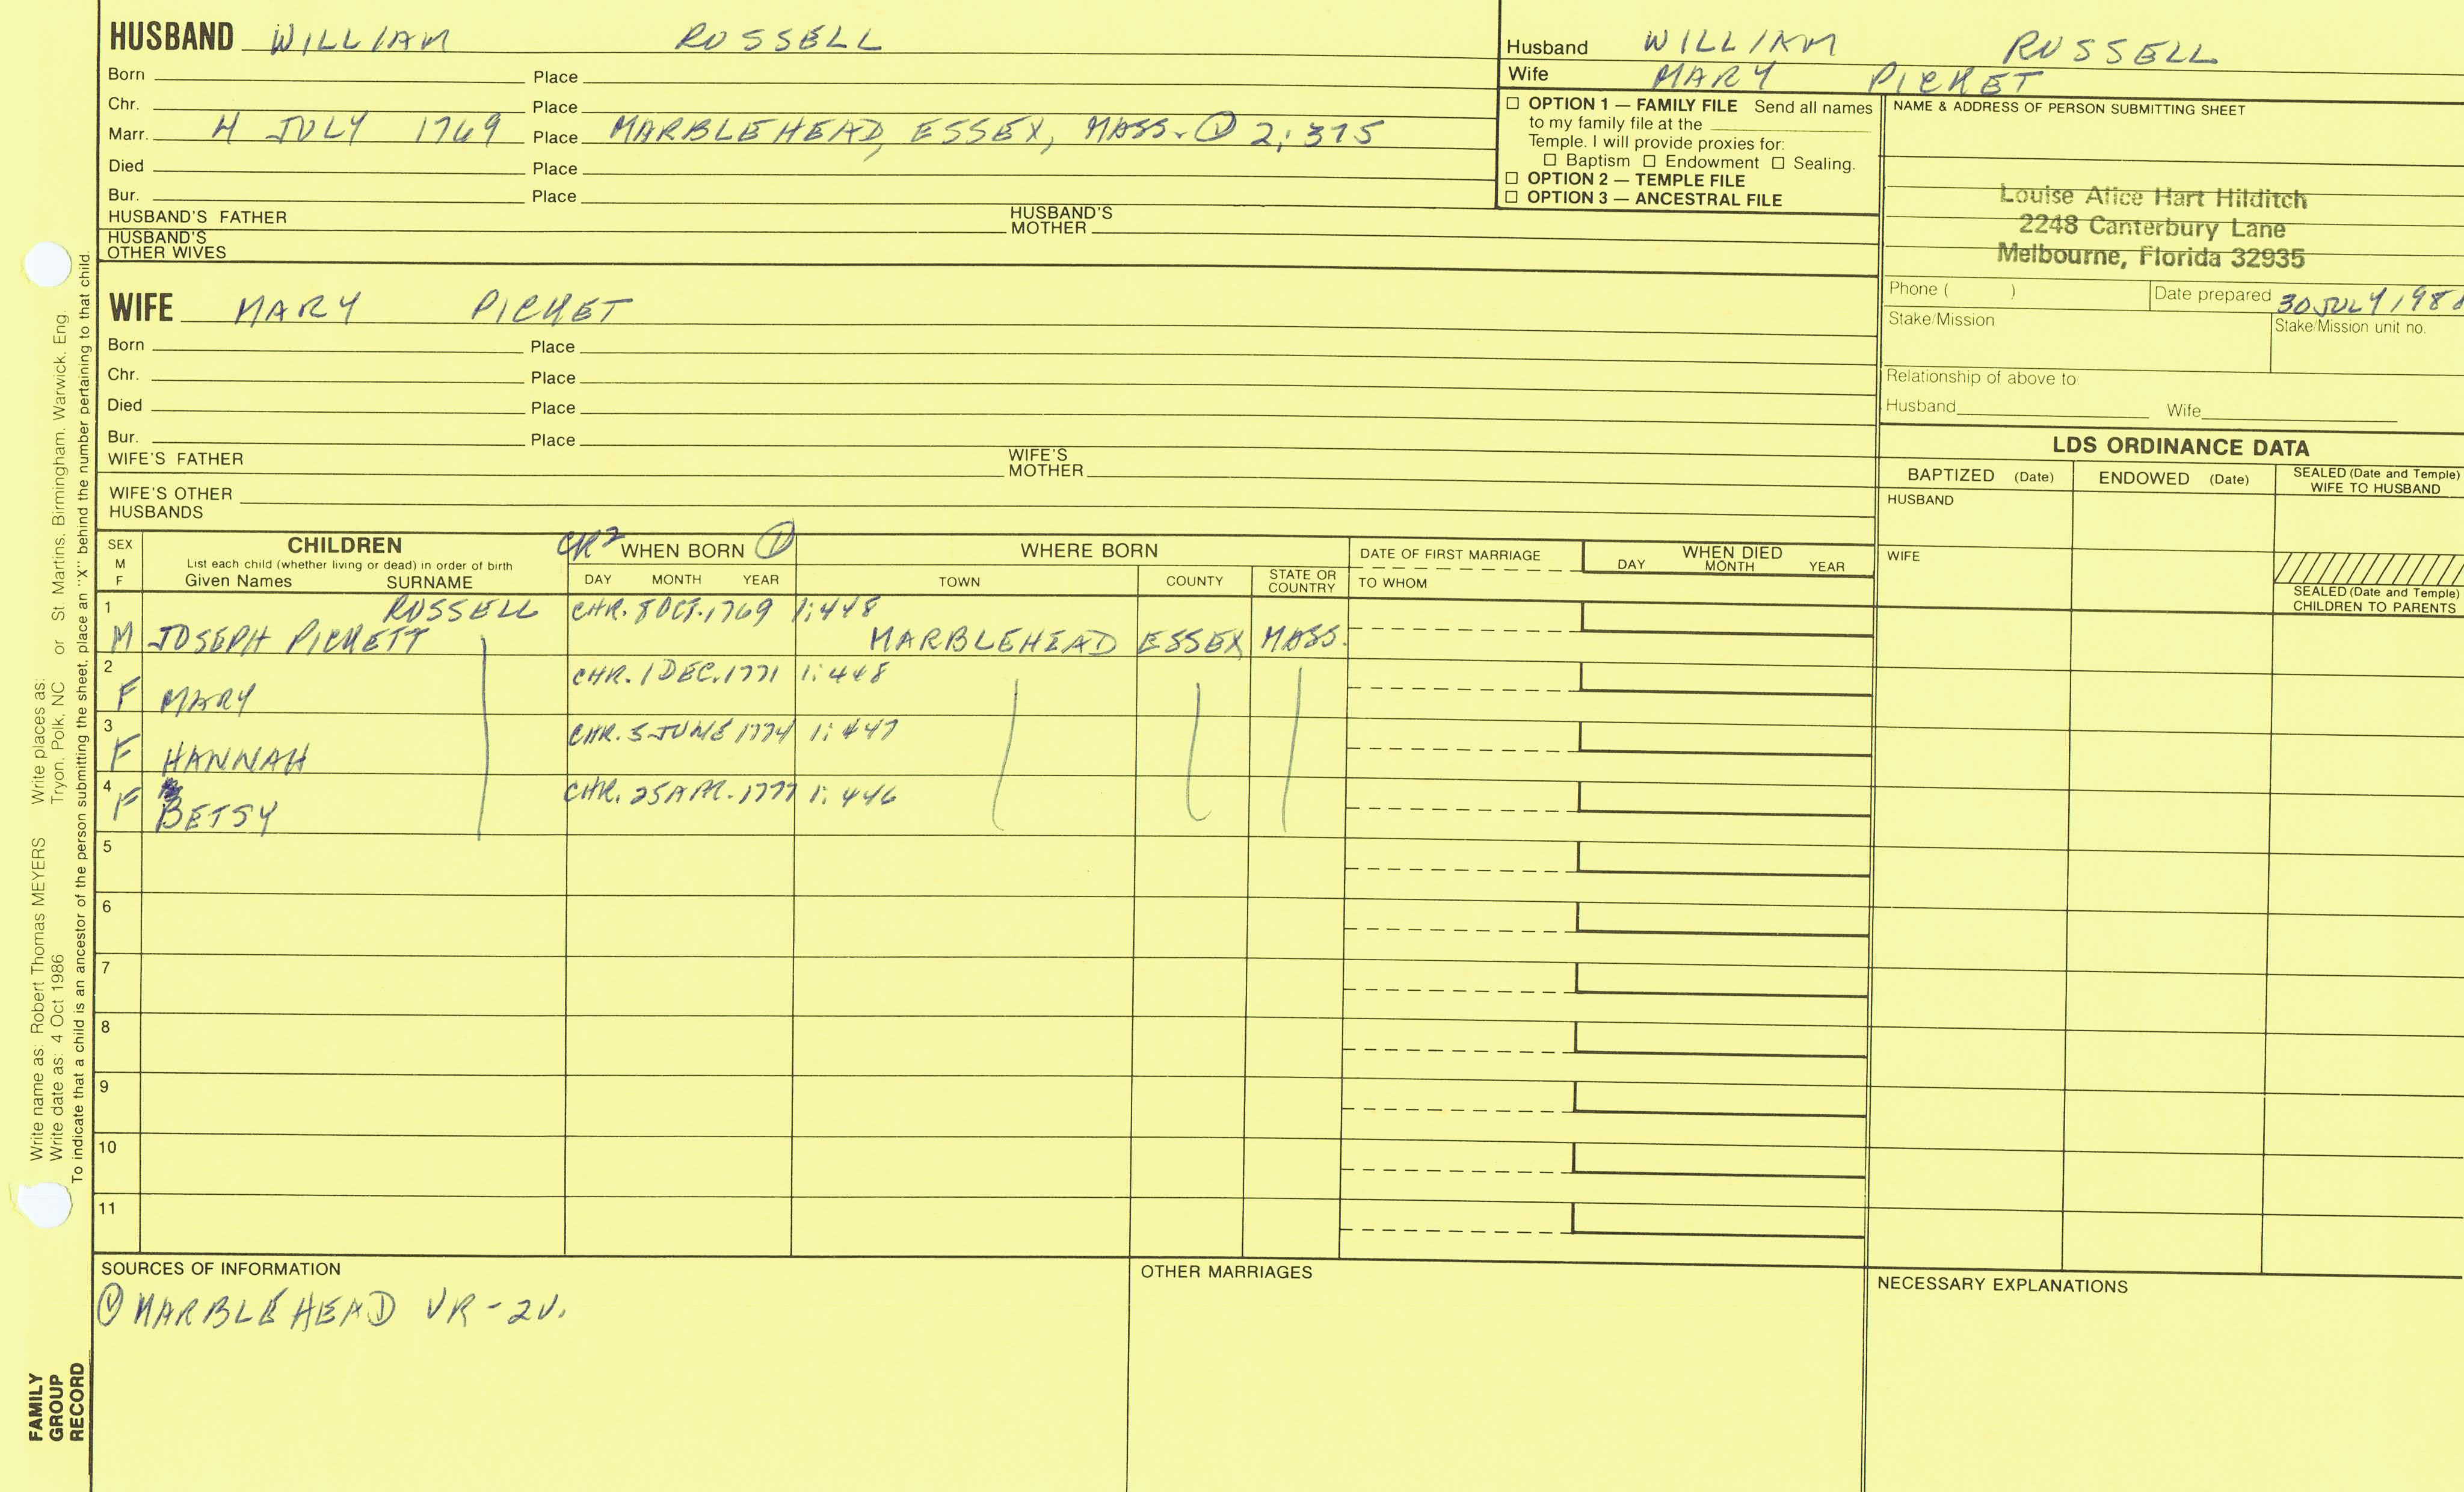 HUSBAND WILLIAM RUSSELL
Born Place
Chr. Place
Marr. 4 JULY 1769 Place MARBLEHEAD, ESSEX, MASS. ① 2:375
Died Place
Bur. Place
HUSBAND'S FATHER HUSBAND'S MOTHER
HUSBAND'S OTHER WIVES
WIFE MARY PICKET
Born Place
Chr. Place
Died Place
Bur. Place
WIFE'S FATHER WIFE'S MOTHER
WIFE'S OTHER HUSBANDS
Husband WILLIAM RUSSELL
Wife MARY PICKET
☐ OPTION 1 — FAMILY FILE Send all names
to my family file at the
Temple. I will provide proxies for:
☐ Baptism ☐ Endowment ☐ Sealing.
☐ OPTION 2 — TEMPLE FILE
☐ OPTION 3 — ANCESTRAL FILE
NAME & ADDRESS OF PERSON SUBMITTING SHEET
Louise Alice Hart Hilditch
2248 Canterbury Lane
Melbourne, Florida 32935
Phone ( ) Date prepared 30 JULY
Stake/Mission Stake/Mission unit no.
Relationship of above to:
Husband Wife
LDS ORDINANCE DATA
BAPTIZED (Date) ENDOWED (Date) SEALED (Date and Temple) WIFE TO HUSBAND
HUSBAND
WIFE
SEALED (Date and Temple) CHILDREN TO PARENTS
SEX M F
CHILDREN
List each child (whether living or dead) in order of birth
Given Names SURNAME
CR2 WHEN BORN ①
DAY MONTH YEAR
WHERE BORN
TOWN COUNTY STATE OR COUNTRY
DATE OF FIRST MARRIAGE
TO WHOM
WHEN DIED
DAY MONTH YEAR
1 RUSSELL CHR. 8 OCT. 1769 1:448
M JOSEPH PICKETT MARBLEHEAD ESSEX MASS.
2 CHR. 1 DEC. 1771 1:448
F MARY
3 CHR. 5 JUNE 1774 1:447
F HANNAH
4 CHR. 25 APR. 1777 1:446
F BETSY
5
6
7
8
9
10
11
SOURCES OF INFORMATION
① MARBLEHEAD VR-2V.
OTHER MARRIAGES
NECESSARY EXPLANATIONS
Write name as: Robert Thomas MEYERS Write places as:
Write date as: 4 Oct 1986 Tryon, Polk, NC or St. Martins, Birmingham, Warwick, Eng.
To indicate that a child is an ancestor of the person submitting the sheet, place an "X" behind the number pertaining to that child.
FAMILY
GROUP
RECORD